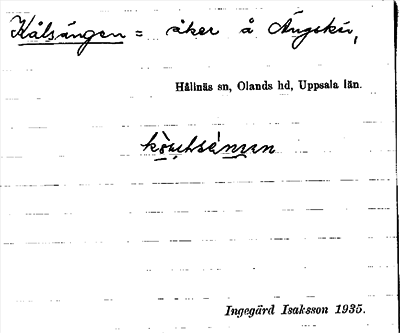 Kålsängen = åker å Ängskär,
Hållnäs sn, Olands hd, Uppsala län.
Ingegärd Isaksson 1935.